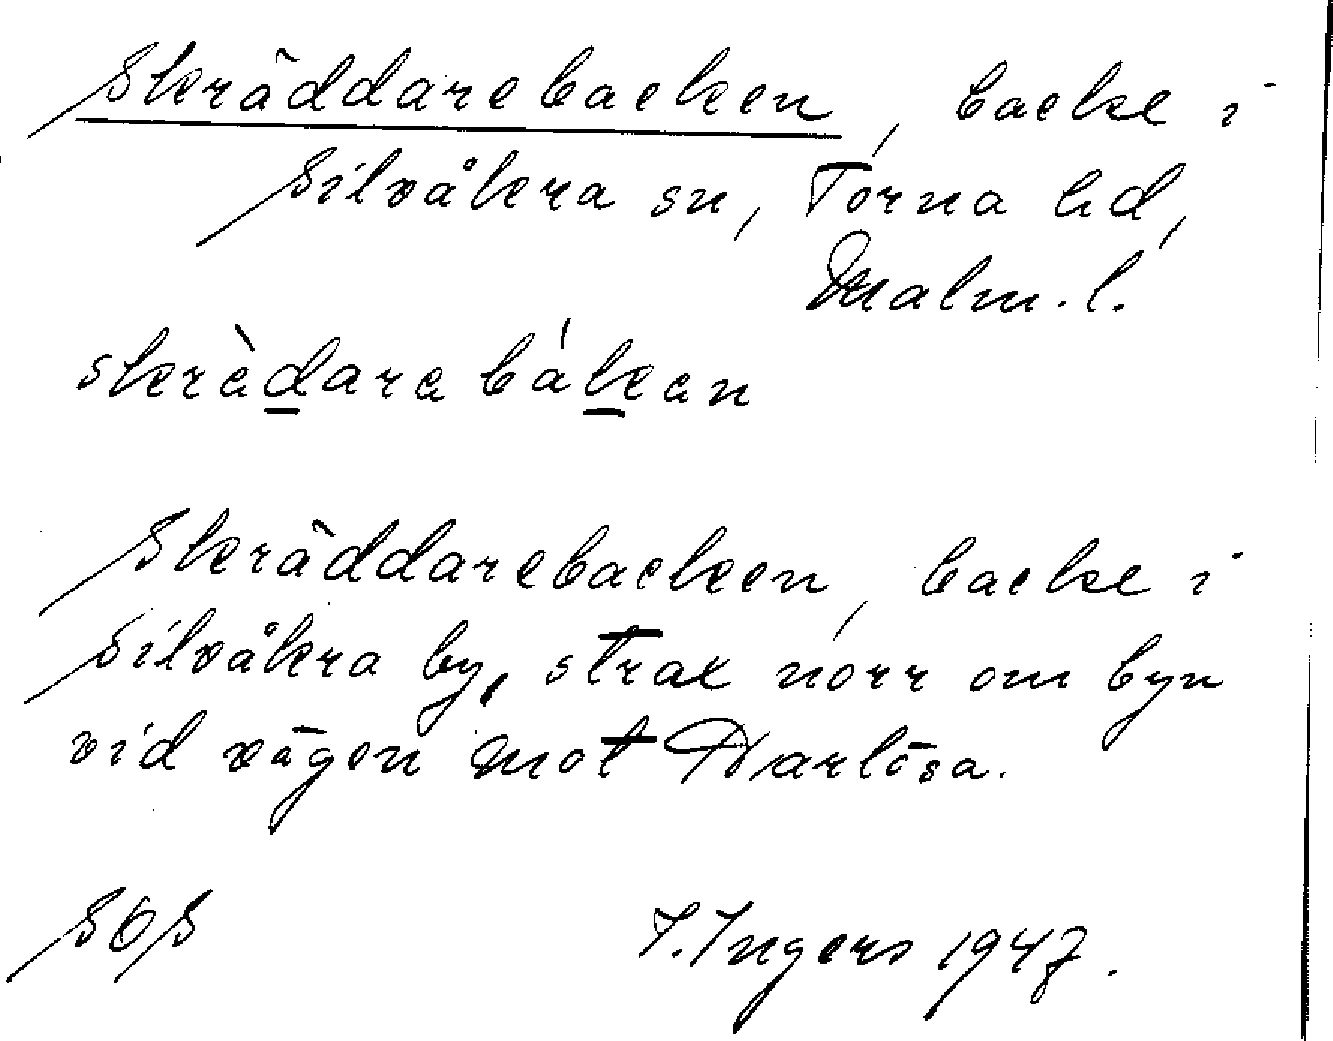 Skräddarebacken, backe i
Silvåkra sn, Torna hd,
Malm. l.
skràdara bákan
Skräddarebacken, backe i
Silvåkra by, strax norr om byn
vid vägen mot Harlösa.
I. Ingers 1947.